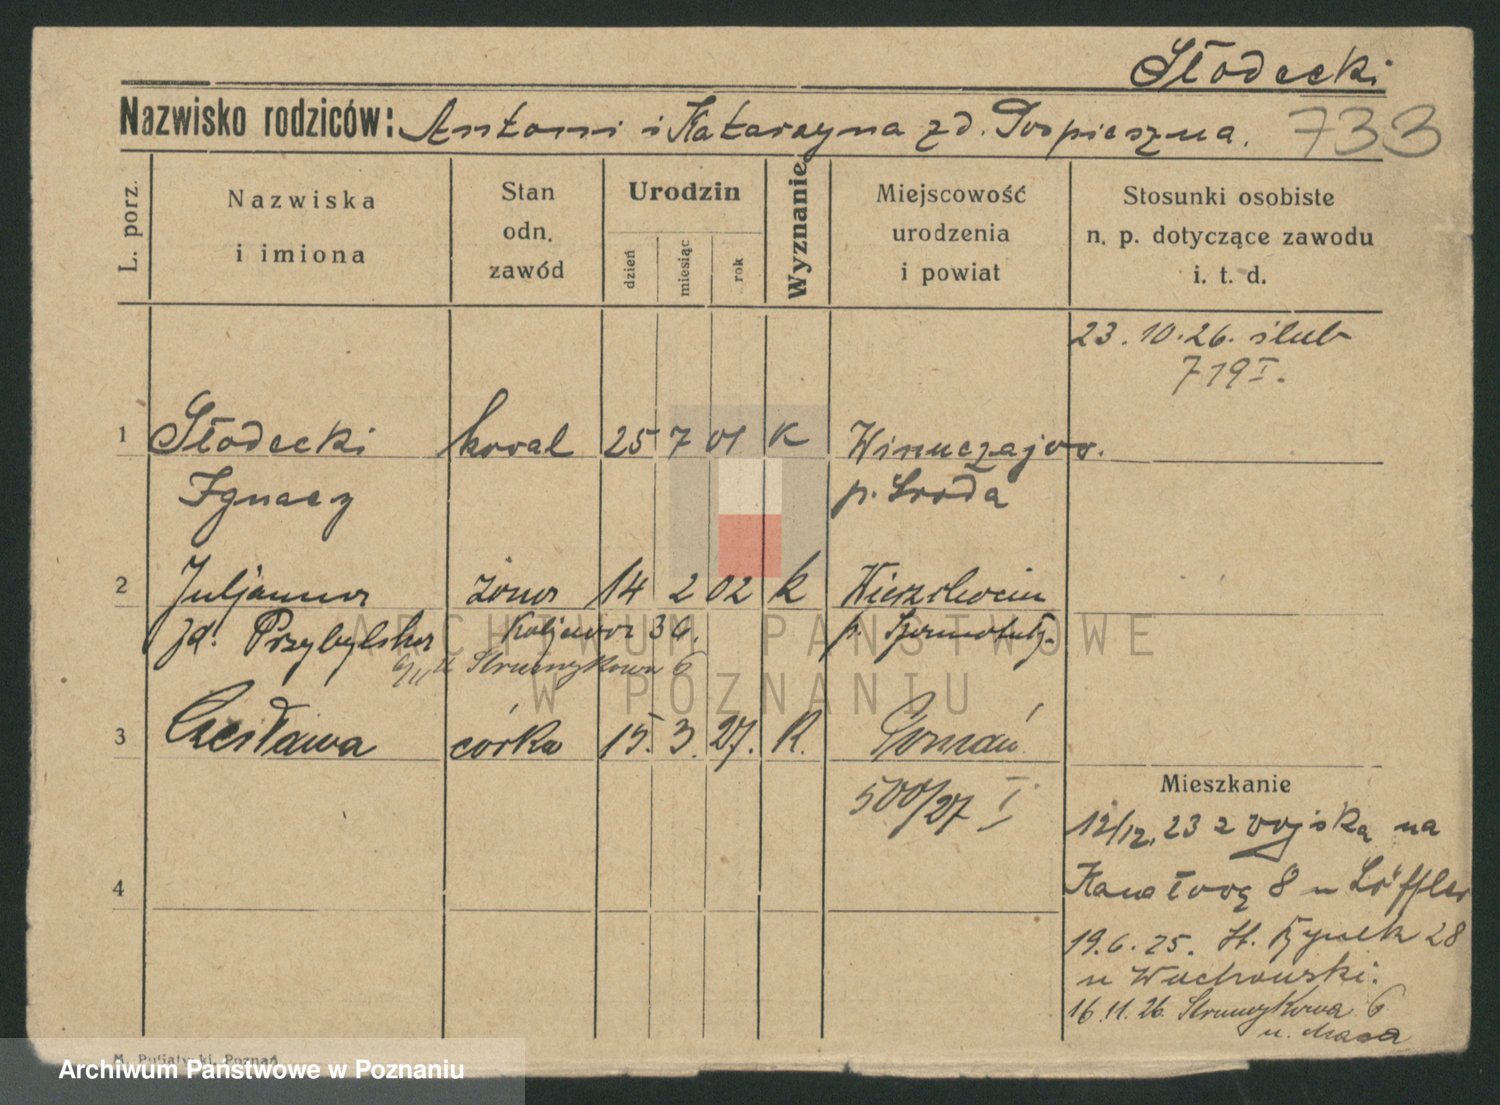 Słodecki
Nazwisko rodziców: Antoni i Katarzyna zd. Pospieszna.
733
L. porz.
Nazwiska
i imiona
Stan
odn.
zawód
Urodzin
dzień
miesiąc
rok
Wyznanie
Miejscowość
urodzenia
i powiat
Stosunki osobiste
n. p. dotyczące zawodu
i. t. d.
23. 10. 26. ślub
719 I.
1 Słodecki kowal 25 7 01 K
Ignacy p. Środa
2 Juljanna żona 14 2 02 k
zd. Przybylska 36.
Strumykowa 6
3 Czesława córka 15. 3. 27. K. Poznań
500/27 I
4
Mieszkanie
12/12. 23 z wojska na
8 u Löffler
19. 6. 25. St. Rynek 28
u Wachowski.
16. 11. 26. Strumykowa 6
u.
ARCHIWUM PAŃSTWOWE
W POZNANIU
Poznań
Archiwum Państwowe w Poznaniu